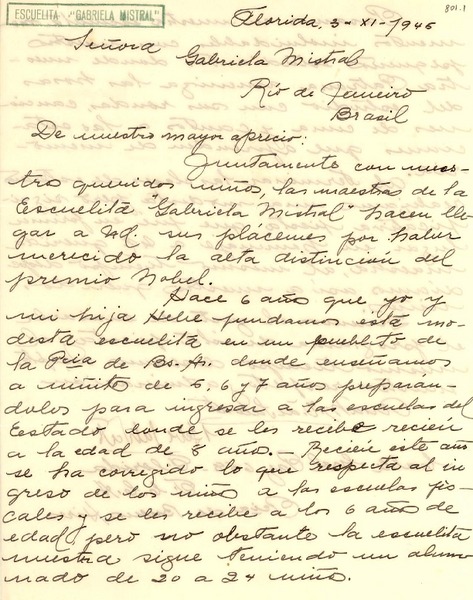 ESCUELITA "GABRIELA MISTRAL"
801-1
Florida, 3-XI-/945
Señora
Gabriela Mistral
Río de Janeiro
Brasil
De nuestro mayor aprecio:
Juntamente con nues-
tros queridos niños, las maestras de la
Escuelita "Gabriela Mistral" hacen lle-
gar a Ud. sus plácemes por haber
merecido la alta distinción del
premio Nobel.
Hace 6 año que yo y
mi hija Hebe fundamos esta mo-
desta escuelita en un pueblito de
la Pcia de Bs. As. donde enseñamos
a niñito de 5, 6 y 7 años preparán-
dolos para ingresar a las escuelas del
Estado donde se les recibe recien
a la edad de 8 años. - Recien este año
se ha corregido lo que respecta al in-
greso de los niño a las escuelas fis-
cales y se les recibe a los 6 años de
edad, pero no obstante la escuelita
nuestra sigue teniendo un alum-
nado de 20 a 24 niño.